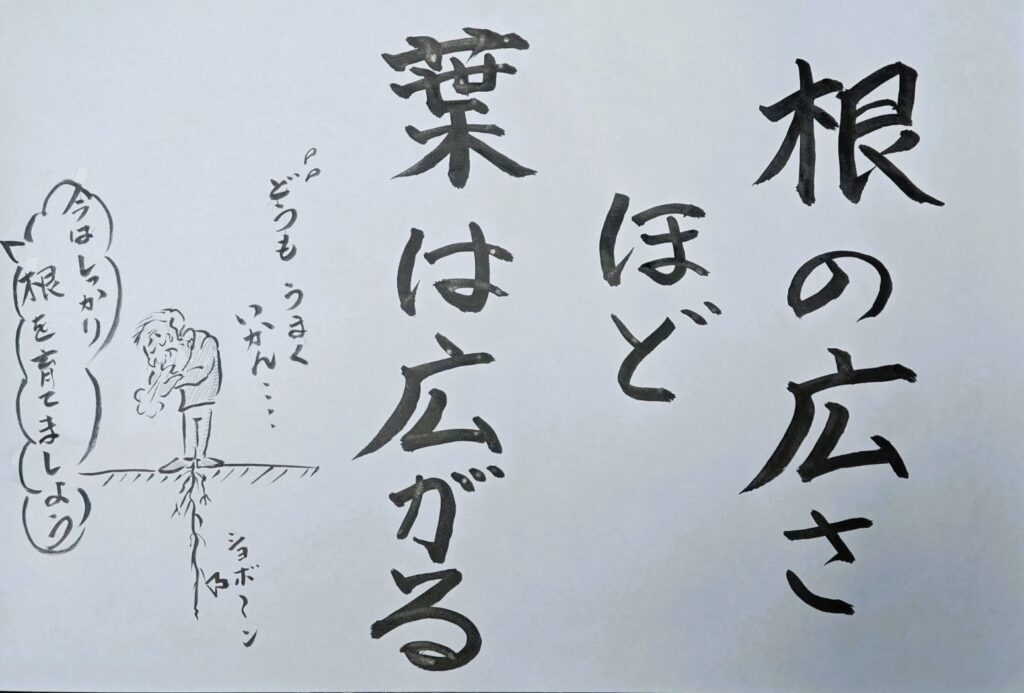 根の広さ
ほど
葉は広がる
どうも うまく
いかん・・・
ショボ〜ン
今はしっかり
根を育てましょう